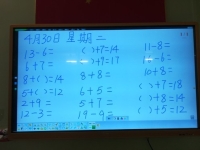 4月30日 星期二
13-6= ( )+7=14 11-8=
6+7= ( )+9=17 11-6=
8+( )=14 8+8= 10+8=
5+( )=12 6+5= ( )+7=18
2+9= 5+7= ( )+8=14
12-3= 19-9= ( )+5=12